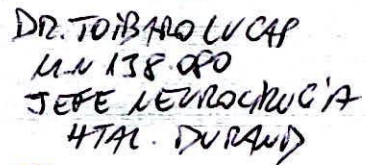 DR. TOIBARO LUCAS
MN 138.080
JEFE NEUROCIRUGIA
HTAL. DURAND